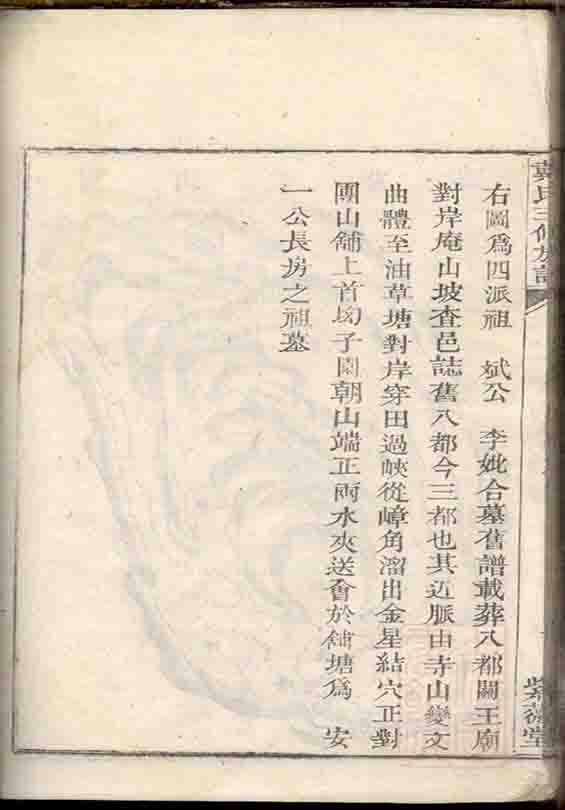 右圖爲四派祖　斌公　李妣合墓舊譜載葬八都關王廟
對岸庵山坡查邑誌舊八都今三都也其近脈由寺山變文
曲體至油草塘對岸穿田過峽從嶂角溜出金星結穴正對
團山舖上首坳子園朝山端正兩水夾送會於舖塘爲　安
一公長房之祖墓
氏三修族譜
紫薇堂